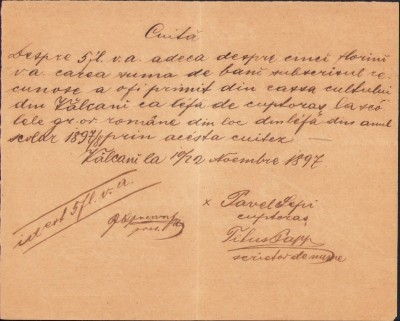 Cuită
Despre 5 fl. v. a. adeca despre cinci florini
v. a. carea suma de bani subscrisul re
cunosc a o fi primit din cassa cultului
din Vălcani ca lefă de cuptoraș la scó
lele gr. or. române din loc din lefă din anul
scolar 1897/8 prin acesta cuitez —
Vălcani la 10/22 Noembre 1897.
id est 5 fl. v. a.
x Pavel
cuptoraș
Titus Papp
scrietor de nume